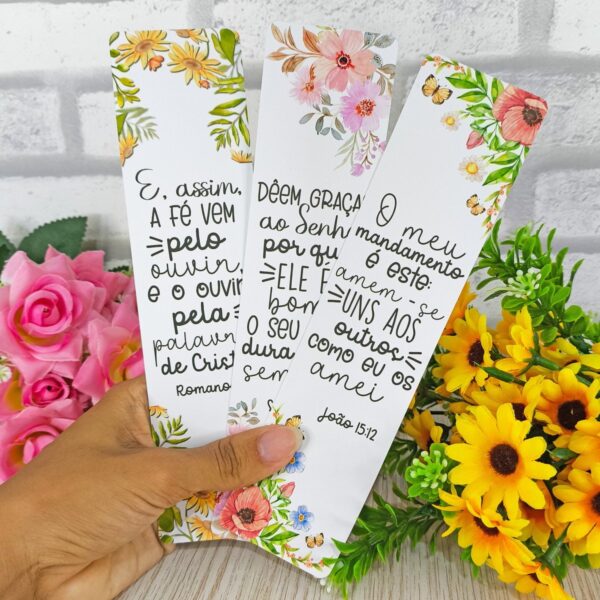 E, assim,
A FÉ VEM
pelo
ouvir,
e o ouvir
pela
palavra
de Crist
Romano
DÊEM GRAÇA
ao Senh
por qu
ELE É
bom
O seu
dura
sem
O meu
mandamento
é este:
amem-se
UNS AOS
outros
como eu os
amei
João 15:12